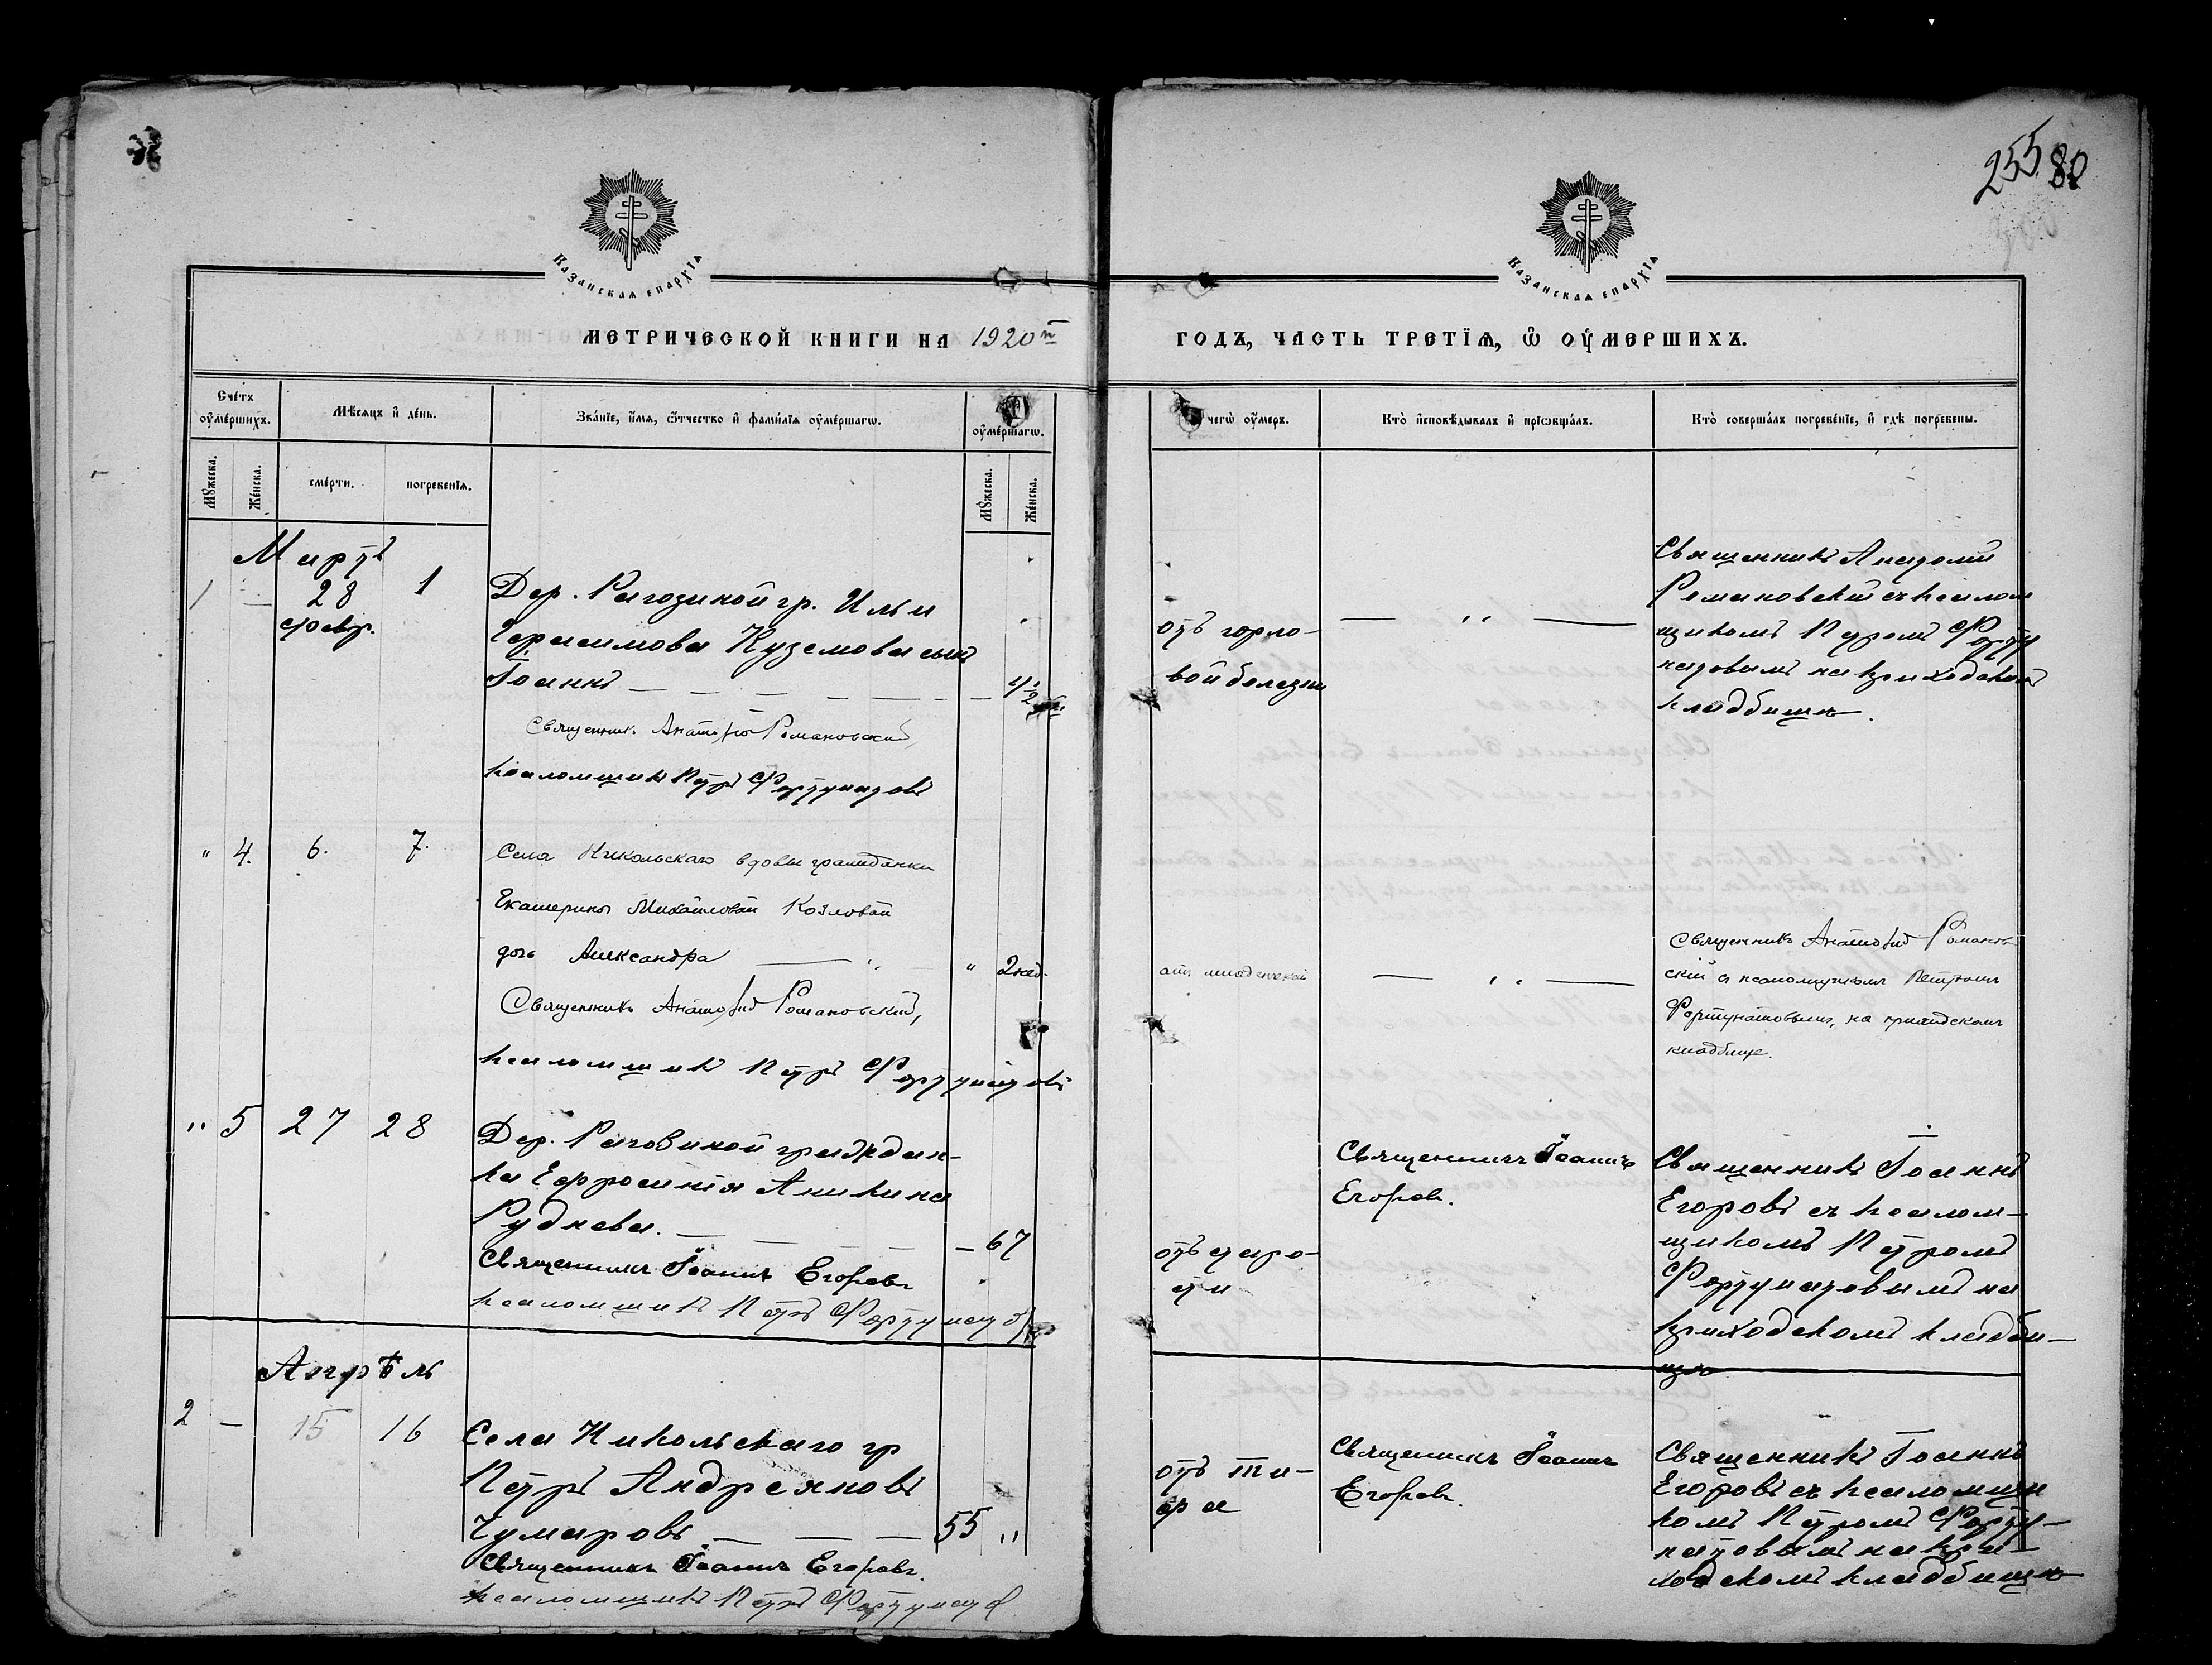 255 80
Казанскаѧ епархїѧ
Казанскаѧ епархїѧ
МЕТРИЧЕСКОЙ КНИГИ НА 1920й
ГОДЪ, ЧАСТЬ ТРЕТІѦ, Ѿ ОУМЕРШИХЪ.
Счéтъ оумéршихъ.
Мѣсяцъ и день.
Звáнїе, и́мя, ѻ́тчество и фами́лїя оумéршагѡ.
оумéршагѡ.
чегѡ оумеръ.
Ктò исповѣдывалъ и прїѡбщáлъ.
Ктò совершáлъ погребéнїе, и гдѣ погребены.
Мꙋжеска.
Жéнска.
смéрти.
погребенїя.
Мꙋжеска.
Жéнска.
Мартъ
1 — 28 февр. 1
Дер. Рагозиной гр. Ильи
Герасимова Куземова сынъ
Іоаннъ — — — — 4½
Священникъ Анатолій Романовскій,
псаломщикъ Петръ Фортунатовъ
отъ горло-
вой болезни
— „ —
Священникъ Анатолій
Романовскій съ псалом
щикомъ Петромъ Форту
натовымъ на приходскомъ
кладбищѣ.
" 4. 6. 7.
Села Никольскаго вдовы гражданки
Екатерины Михайловой Козловой
дочь Александра — " 2 нед.
Священникъ Анатолій Романовскій,
псаломщикъ Петръ Фортунатовъ
отъ младенской
— „ —
Священникъ Анатолій Романов
скій съ псаломщикомъ Петромъ
Фортунатовымъ, на приходскомъ
кладбище.
" 5 27 28
Дер. Рагозиной граждан-
ка Ефросинія Аникина
Руднева. — — — — 67
Священникъ Іоаннъ Егоровъ
псаломщикъ Петръ Фортунатов
отъ старо-
сти
Священникъ Іоаннъ
Егоровъ.
Священникъ Іоаннъ
Егоровъ съ псалом-
щикомъ Петромъ
Фортунатовымъ на
приходскомъ кладби-
щѣ
Апрѣль
2 — 15 16
Села Никольскаго гр
Петръ Андреяновъ
Чумаровъ — — — 55 "
Священникъ Іоаннъ Егоровъ.
псаломщикъ Петръ Фортунатов
отъ ти-
фа
Священникъ Іоаннъ
Егоровъ.
Священникъ Іоаннъ
Егоровъ съ псаломщи
комъ Петромъ Форту-
натовымъ на при-
ходскомъ кладбищѣ